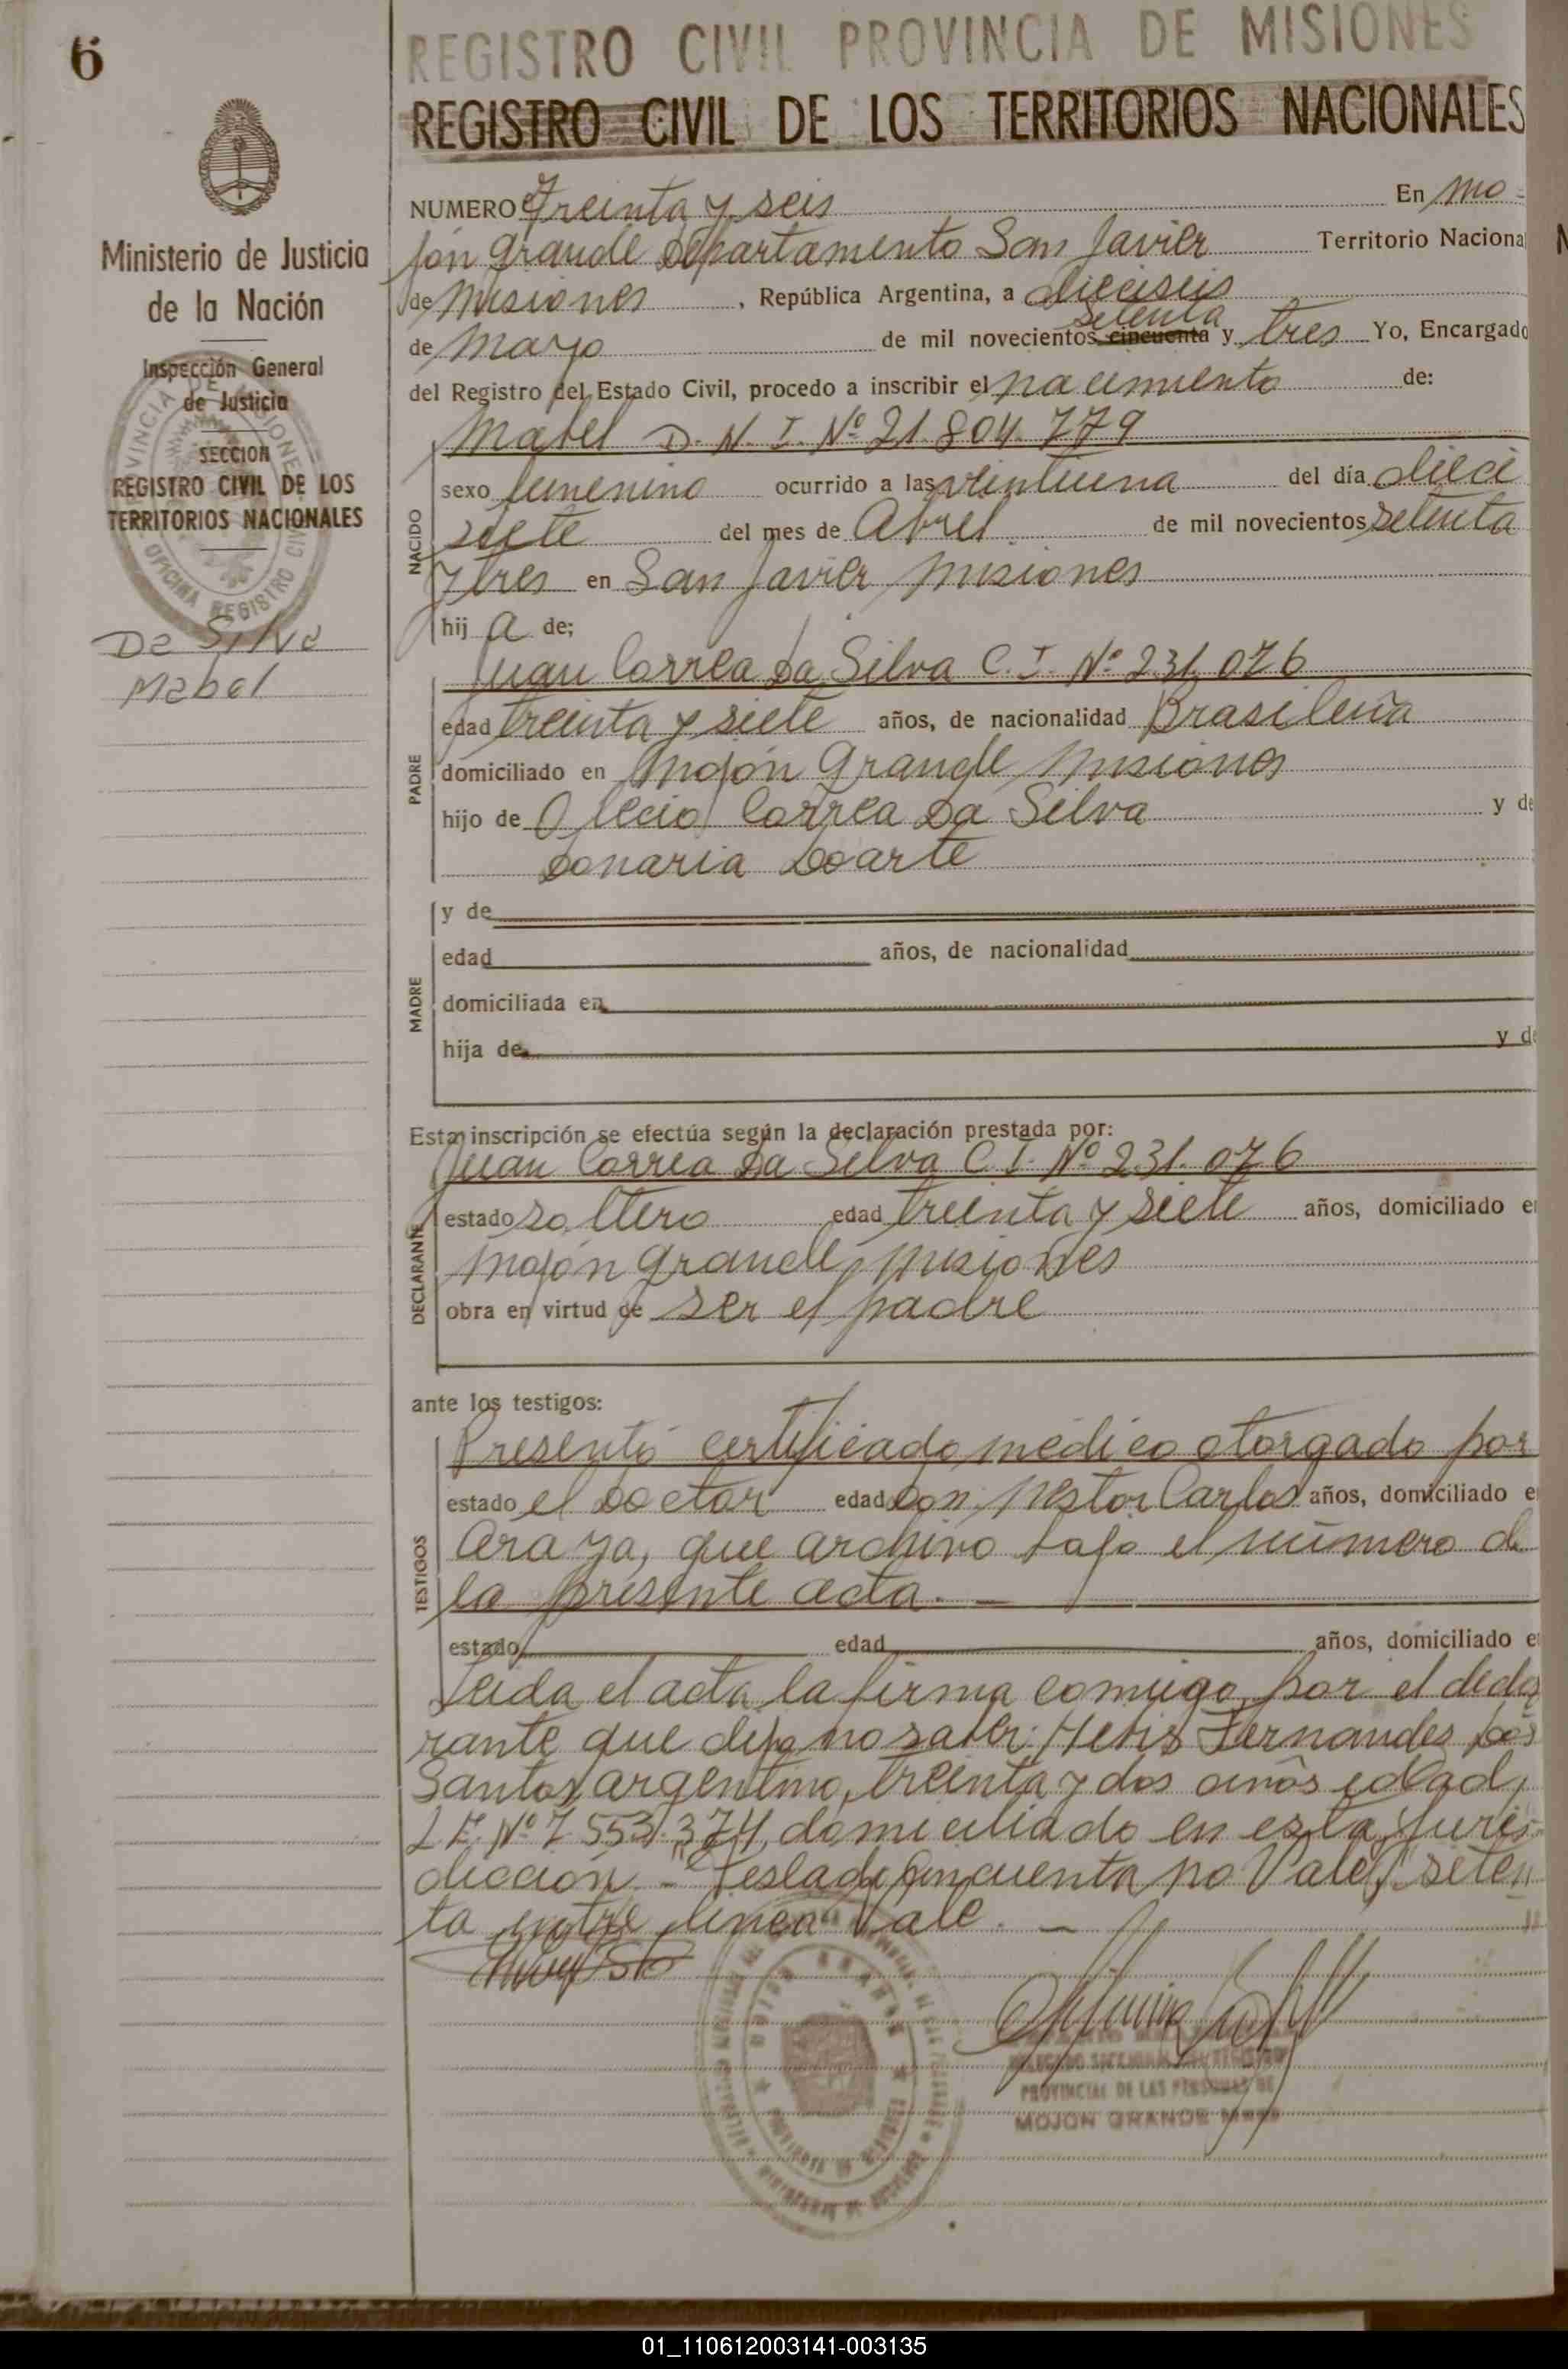 6
Ministerio de Justicia
de la Nación
Inspección General
de Justicia
SECCION
REGISTRO CIVIL DE LOS
TERRITORIOS NACIONALES
PROVINCIA DE MISIONES
OFICINA REGISTRO CIVIL
Da Silva
Mabel
REGISTRO CIVIL PROVINCIA DE MISIONES
REGISTRO CIVIL DE LOS TERRITORIOS NACIONALES
NUMERO Treinta y seis En Mo-
jón Grande Departamento San Javier Territorio Naciona
de Misiones, República Argentina, a dieciseis
setenta
de Mayo de mil novecientos cincuenta y tres Yo, Encargado
del Registro del Estado Civil, procedo a inscribir el nacimiento de:
NACIDO
Mabel D. N. I. Nº 21.804.779
sexo femenino ocurrido a las veintiuna del día dieci
siete del mes de Abril de mil novecientos setenta
y tres en San Javier Misiones
hij a de;
PADRE
Juan Correa Da Silva C. I. Nº 231.076
edad treinta y siete años, de nacionalidad Brasileña
domiciliado en Mojón Grande, Misiones
hijo de Olecio Correa Da Silva y de
Donaria Doarte
MADRE
y de
edad años, de nacionalidad
domiciliada en
hija de y de
Esta inscripción se efectúa según la declaración prestada por:
DECLARANTE
Juan Correa Da Silva C. I. Nº 231.076
estado soltero edad treinta y siete años, domiciliado e
Mojón Grande, Misiones
obra en virtud de ser el padre
ante los testigos:
TESTIGOS
Presentó certificado médico otorgado por
estado el Doctor edad Don Nestor Carlos años, domiciliado e
Araya, que archivo bajo el número de
la presente acta. —
estado edad años, domiciliado e
Leida el acta la firma conmigo, por el decla
rante que dijo no saber: Fernandes Dos
Santos, argentino, treinta y dos años edad,
L E. Nº 7.553.374, domiciliado en esta juris-
diccion. - Teslado cincuenta no Vale, "seten
ta entre linea" Vale. —
PROVINCIAL DE LAS PERSONAS DE
MOJON GRANDE
01_110612003141-003135